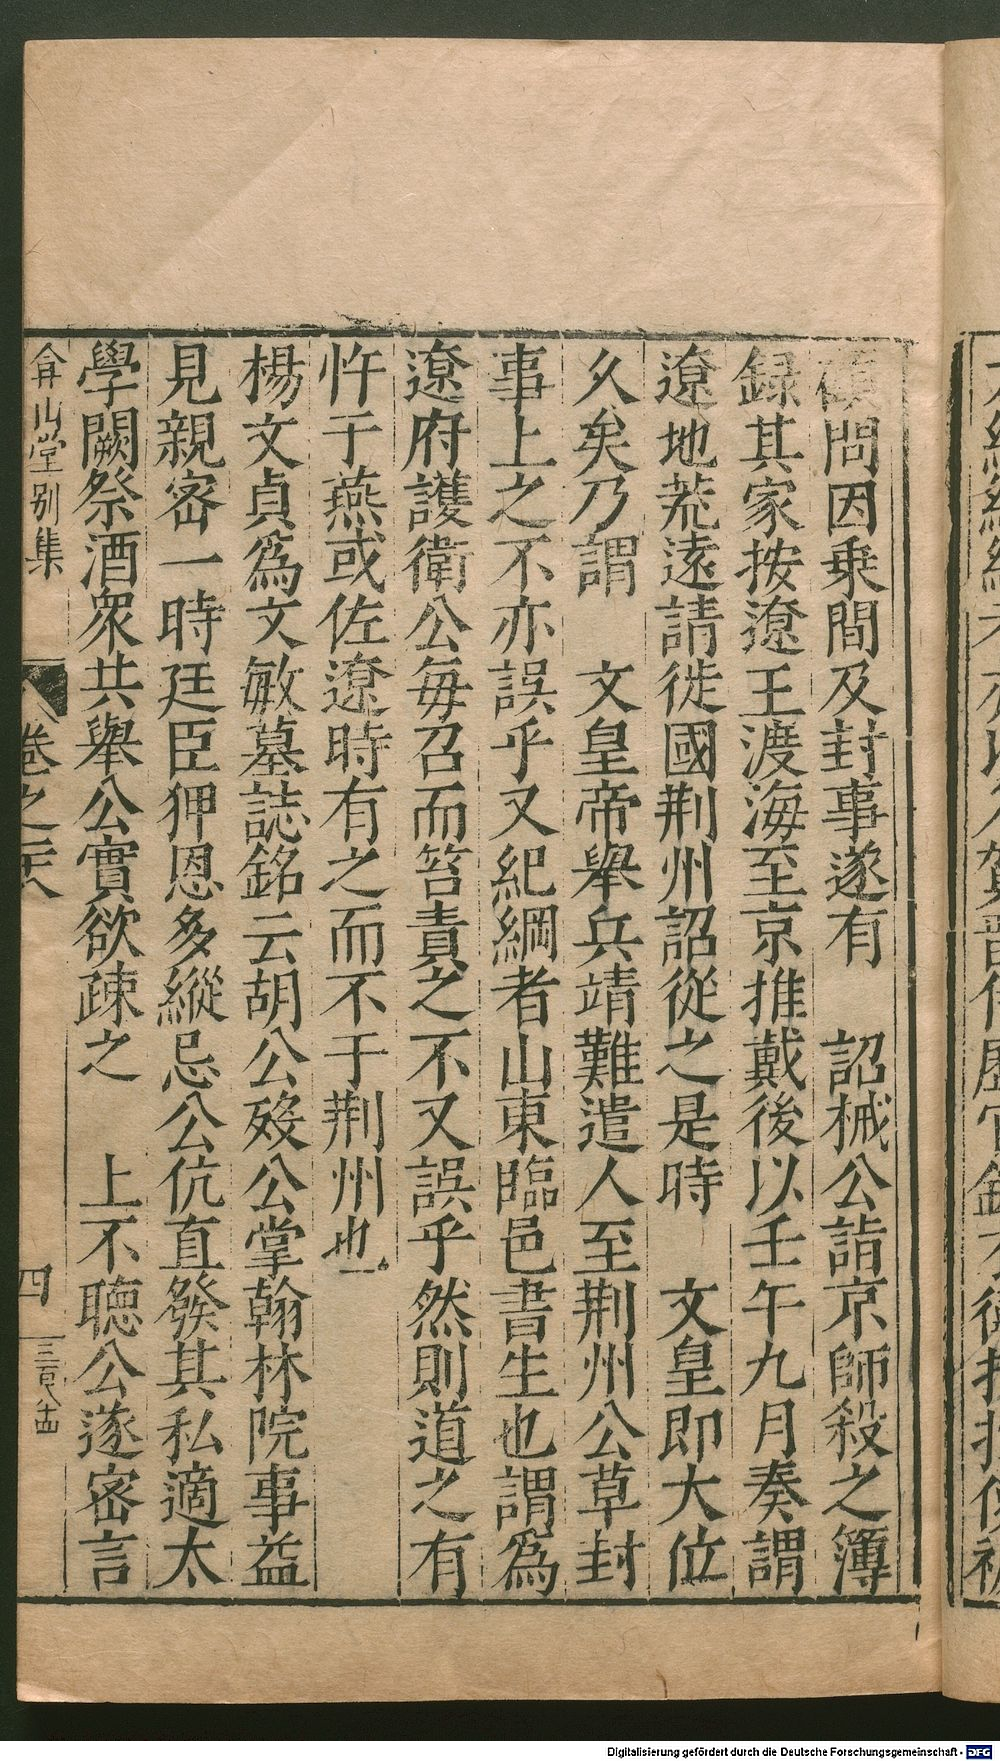 顧問因乗間及封事遂有　詔械公詣京師殺之簿
録其家按遼王渡海至京推戴後以壬午九月奏謂
遼地荒遠請徙國荆州詔從之是時　文皇即大位
久矣乃謂　文皇帝舉兵靖難遣人至荆州公草封
事上之不亦誤乎又紀綱者山東臨邑書生也謂為
遼府護衛公毎召而笞責之不又誤乎然則道之有
忤于燕或佐遼時有之而不于荆州也
楊文貞為文敏墓誌銘云胡公歿公掌翰林院事益
見親密一時廷臣狎恩多縱忌公伉直發其私適太
學闕祭酒衆共舉公實欲疎之　上不聽公遂密言
弇山堂别集　卷之二十八　四　三百八十四
Digitalisierung gefördert durch die Deutsche Forschungsgemeinschaft - DFG